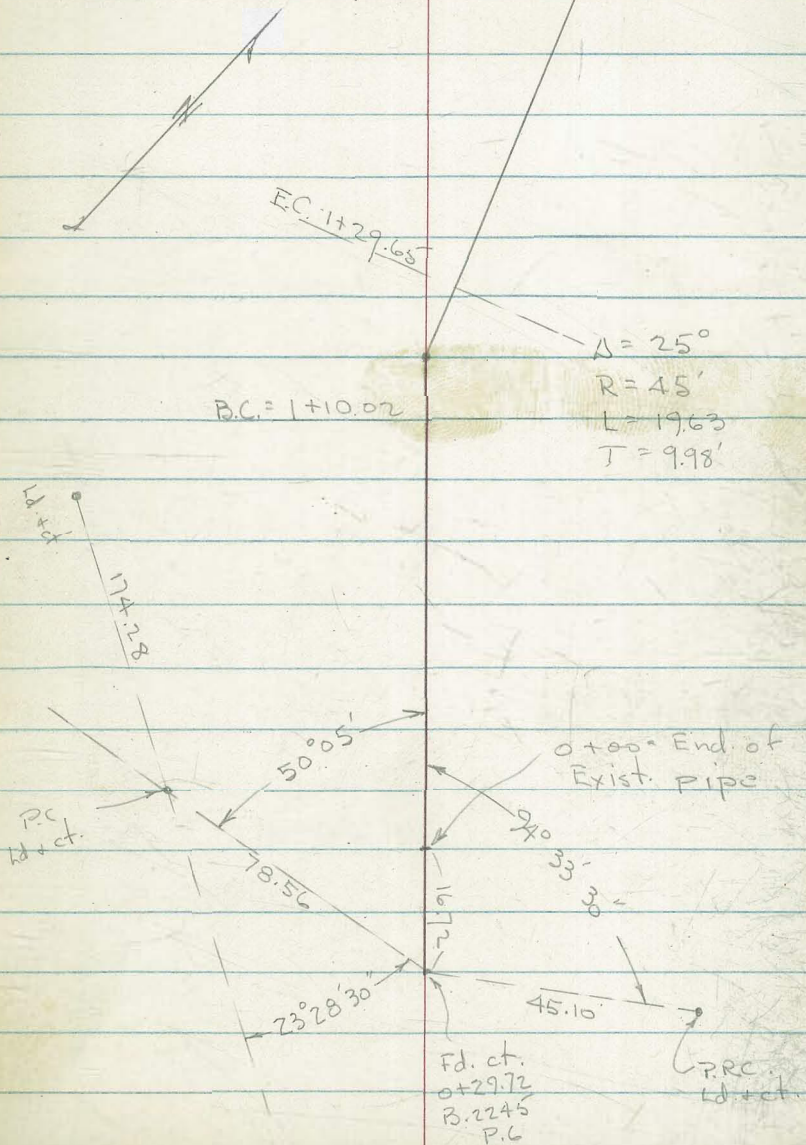 N
E.C. 1+29.65
Δ = 25°
R = 45'
L = 19.63
T = 9.98'
B.C. = 1+10.02
Ld. + ct.
174.28
50°05'
0+00 = End. of
Exist. pipe
P.C.
Ld + ct.
94° 33' 30"
78.56
16.72
23°28'30"
45.10
Fd. ct.
0+29.72
B. 2245
P.6
P.RC.
Ld. + ct.